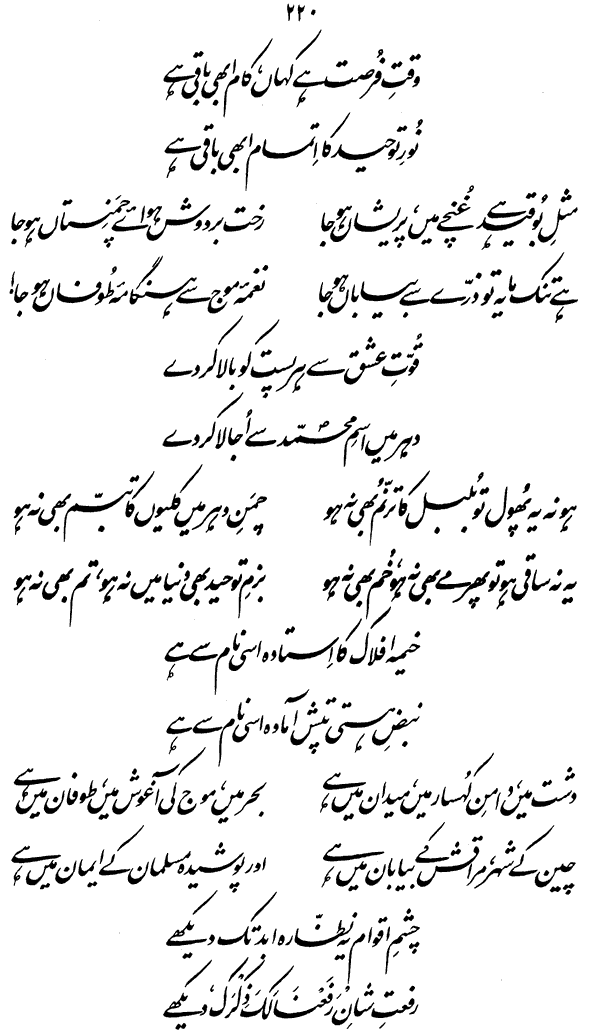 ۲۲۰
وقتِ فُرصت ہے کہاں، کام ابھی باقی ہے
نُورِ توحید کا اِتمام ابھی باقی ہے
مثلِ بُو قید ہے غُنچے میں، پریشاں ہو جا رخت بردوش ہوائے چَمنِستاں ہو جا
ہے تنک مایہ تو ذرّے سے بیاباں ہو جا نغمۂ موج سے ہنگامۂ طُوفاں ہو جا!
قُوّتِ عشق سے ہر پست کو بالا کر دے
دہر میں اسمِ محمّدؐ سے اُجالا کر دے
ہو نہ یہ پھُول تو بُلبل کا ترنّم بھی نہ ہو چمنِ دہر میں کلیوں کا تبسّم بھی نہ ہو
یہ نہ ساقی ہو تو پھر مے بھی نہ ہو، خُم بھی نہ ہو بزمِ توحید بھی دنیا میں نہ ہو، تم بھی نہ ہو
خیمہ افلاک کا اِستادہ اسی نام سے ہے
نبضِ ہستی تپش آمادہ اسی نام سے ہے
دشت میں، دامنِ کُہسار میں، میدان میں ہے بحر میں، موج کی آغوش میں، طوفان میں ہے
چین کے شہر، مراقش کے بیابان میں ہے اور پوشیدہ مسلمان کے ایمان میں ہے
چشمِ اقوام یہ نظّارہ ابد تک دیکھے
رفعتِ شانِ رَفَعْنَا لَکَ ذِکْرَکَ دیکھے